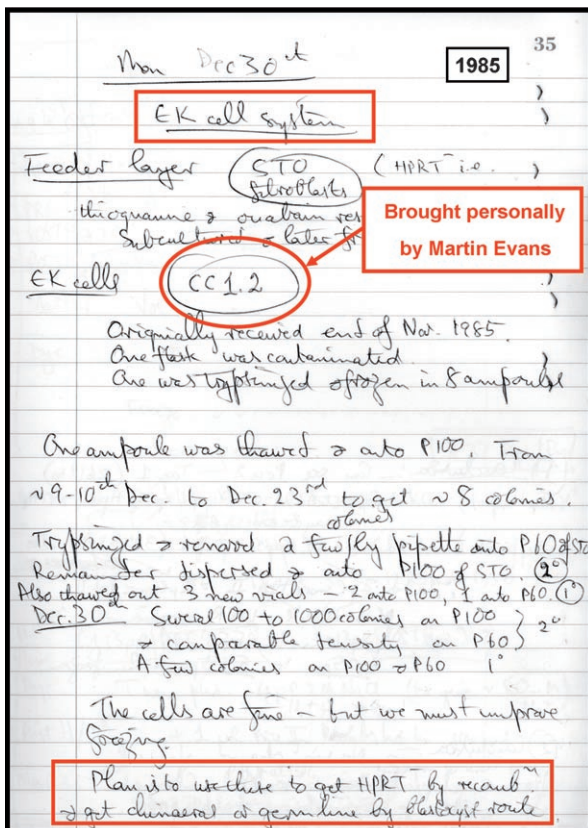 35
Mon Dec 30th
1985
EK cell system
Feeder layer STO (HPRT⁻ i.e.
fibroblasts
thioguanine & ouabain res
Subcultured & later fr
Brought personally
by Martin Evans
EK cells CC 1.2
Originally received end of Nov. 1985.
One flask was contaminated.
One was trypsinized & frozen in 8 ampoules
One ampoule was thawed & onto P100. From
~9-10th Dec. to Dec. 23rd to get ~8 colonies.
colonies
Trypsinized & removed a few by pipette onto P60 of STO
Remainder dispersed & onto P100 of STO. 2°
Also thawed out 3 new vials – 2 onto P100, 1 onto P60. 1°
Dec. 30th Several 100 to 1000 colonies on P100
& comparable density on P60 } 2°
A few colonies on P100 & P60 1°
The cells are fine – but we must improve
freezing.
Plan is to use these to get HPRT⁻ by recombn
& get chimaeras or germline by blastocyst route